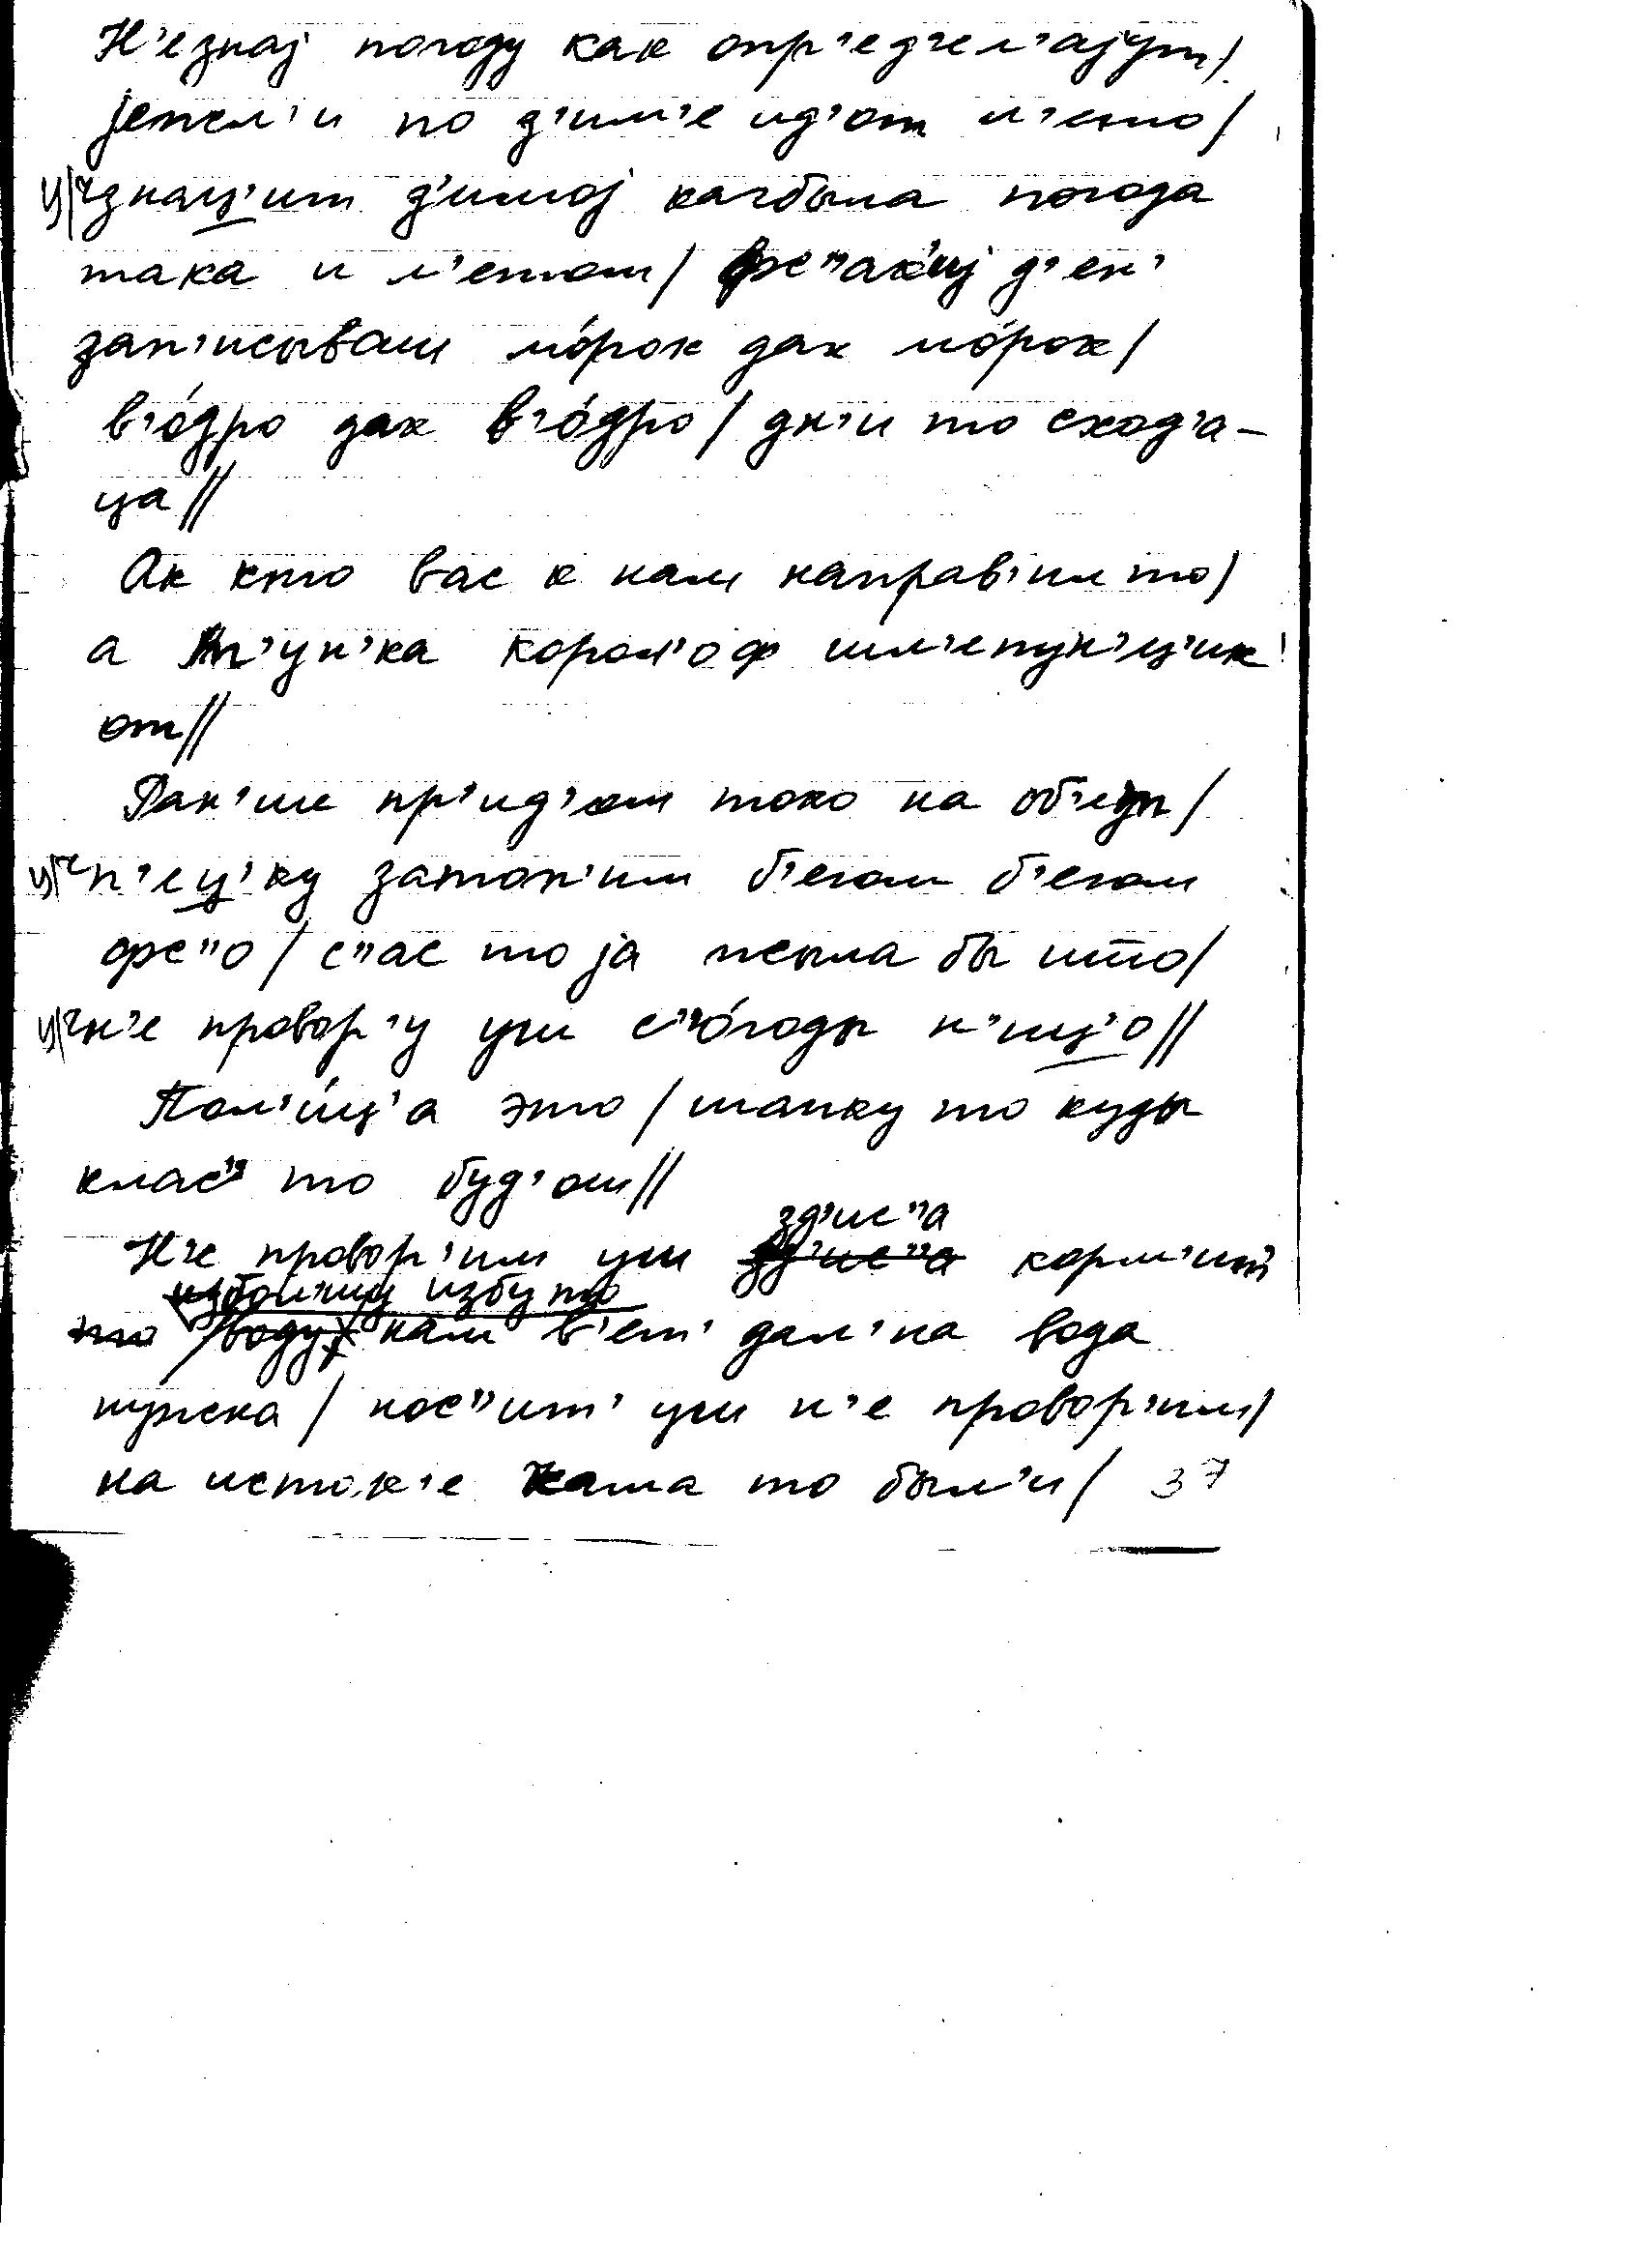 Н'е знај погоду как опр'ед'ел'ајут/
јепсл'и по з'им'е ид'от л'ето/
ц/ч знац'ит з'имој кагбыла погода
така и л'етом/ фс"ак'иј д'ен'
зап'исывам мо́рок дак мо́рок/
в'о́дро дак в'о́дро/ дн'и то сход'а-
ца//
Ак кто вас к нам направ'ил то/
а Т'ун'ка корол'оф
от//
Ран'ше пр'ид'ом токо на об'ет/
ц/ч п'ец'ку затоп'им б'егом б'егом
фс"о/ с"ас то ја жыла бы што/
ц/ч н'е провор'у уш с"о́годы н'иц'о//
Пол'и́ц'а это/ шапку то куды
клас"т то буд'ом//
зд'ис"а
Н'е провор'им уш зд'ис"а корм'ит
избу то
то /воду/ нам в'ет' дал'на вода
нужна/ нос"ит' уш н'е провор'им/
на исток'е кама то был'и/ 37